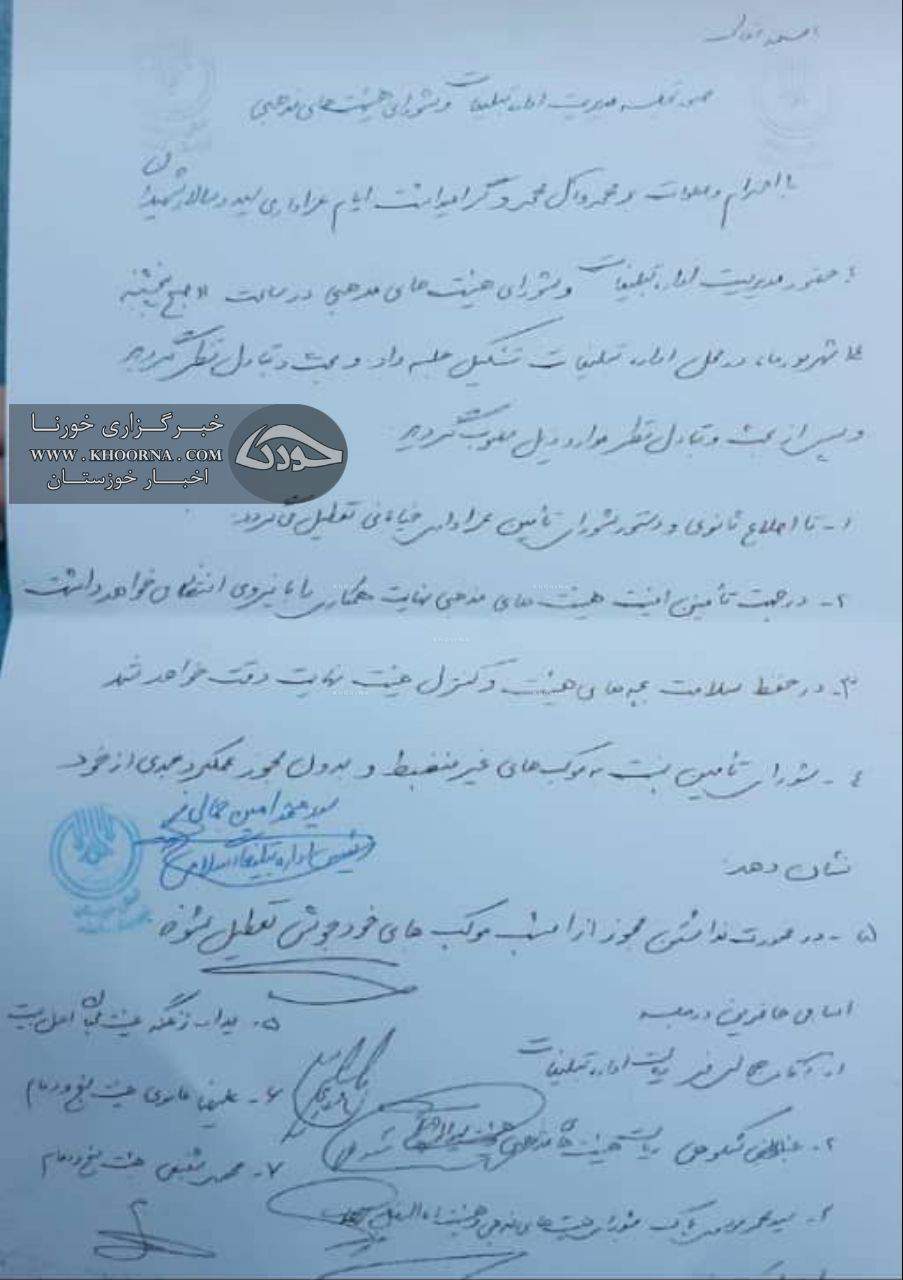 بسمه تعالی
صورتجلسه مدیریت اداره تبلیغات و شورای هیئت های مذهبی
با احترام و صلوات بر محمد و آل محمد و گرامیداشت ایام عزاداری سید و سالار شهیدان
حضور مدیریت اداره تبلیغات و شورای هیئت های مذهبی در ساعت ۱۱ صبح پنجشنبه
شهریور ماه در محل اداره تبلیغات تشکیل جلسه داد و بحث و تبادل نظر گردید
و پس از بحث و تبادل نظر موارد ذیل مصوب گردید
خبرگزاری خورنا
WWW.KHOORNA.COM
اخبار خوزستان
۱- تا اطلاع ثانوی و دستور شورای تأمین عزاداری خیابانی تعطیل می گردد.
۲- در جهت تأمین امنیت هیئت های مذهبی نهایت همکاری را با نیروی انتظامی خواهد داشت
۳- در حفظ سلامت بچه های هیئت و کنترل هیئت نهایت دقت خواهد شد
۴- شورای تأمین نسبت به موکب های غیر منضبط و بدون مجوز عملکرد جدی از خود
نشان دهد.
سید محمد امین جمالی فر
رئیس اداره تبلیغات اسلامی
۵- در صورت نداشتن مجوز از امشب موکب های خودجوش تعطیل شود
اسامی حاضرین در جلسه
۱- آقای جمالی فر ریاست اداره تبلیغات
۲- ریاست هیئت های مذهبی
۳- سید محمد شورای هیئت های مذهبی و هیئت
۵- زنگنه هیئت محبان اهل بیت
۶- علیرضا هیئت
۷- محمد شفیعی هیئت